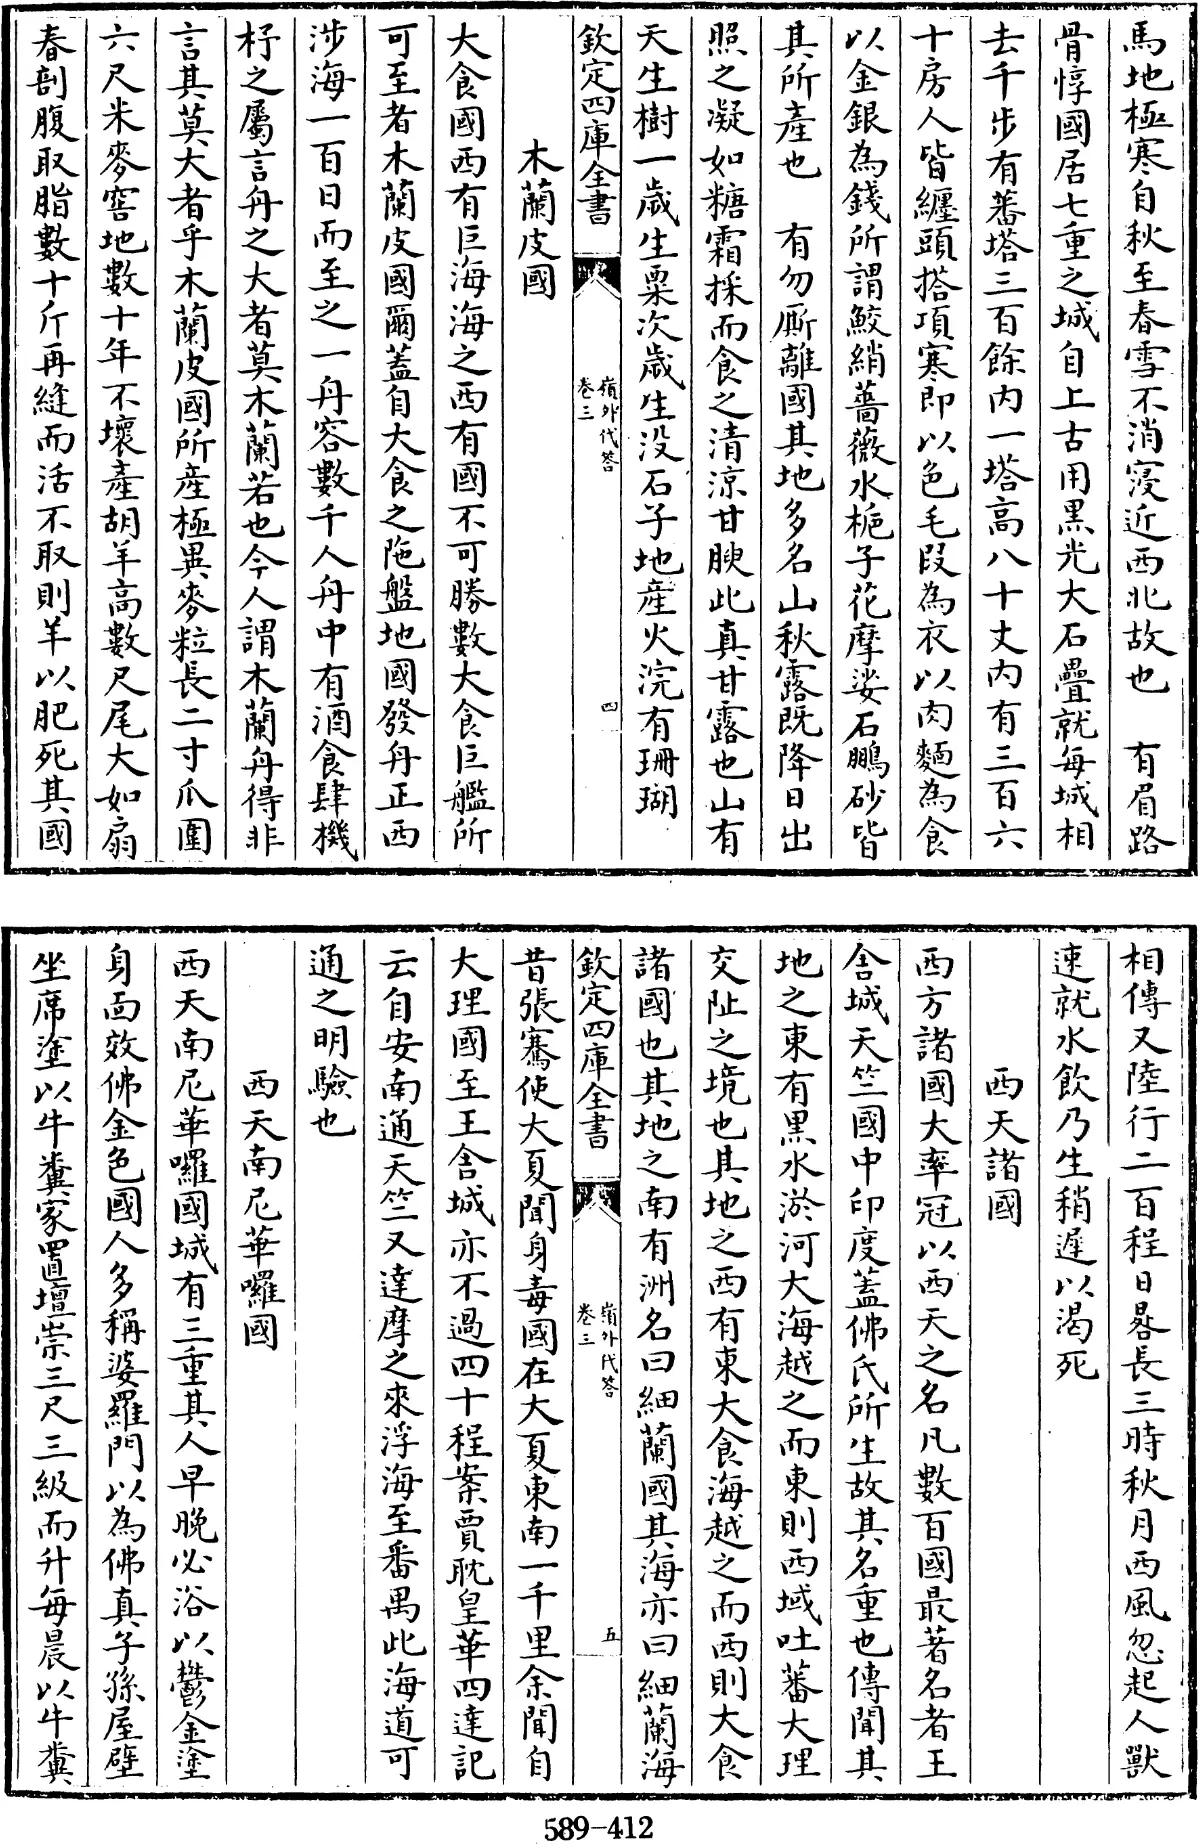 馬地極寒自秋至春雪不消寢近西北故也　有眉路
骨惇國居七重之城自上古用黑光大石疊就每城相
去千步有蕃塔三百餘内一塔高八十丈内有三百六
十房人皆纏頭搭項寒即以色毛段為衣以肉麵為食
以金銀為錢所謂鮫綃薔薇水梔子花摩娑石鵬砂皆
其所產也　有勿厮離國其地多名山秋露既降日出
照之凝如糖霜採而食之清涼甘腴此真甘露也山有
天生樹一歲生粟次歲生没石子地產火浣有珊瑚
欽定四庫全書
嶺外代答
卷三
四
木蘭皮國
大食國西有巨海海之西有國不可勝數大食巨艦所
可至者木蘭皮國爾蓋自大食之陁盤地國發舟正西
涉海一百日而至之一舟容數千人舟中有酒食肆機
杼之屬言舟之大者莫木蘭若也今人謂木蘭舟得非
言其莫大者乎木蘭皮國所產極異麥粒長二寸瓜圍
六尺米麥窖地數十年不壞產胡羊高數尺尾大如扇
春剖腹取脂數十斤再縫而活不取則羊以肥死其國
相傳又陸行二百程日晷長三時秋月西風忽起人獸
速就水飲乃生稍遲以渴死
西天諸國
西方諸國大率冠以西天之名凡數百國最著名者王
舍城天竺國中印度蓋佛氏所生故其名重也傳聞其
地之東有黑水淤河大海越之而東則西域吐蕃大理
交阯之境也其地之西有東大食海越之而西則大食
諸國也其地之南有洲名曰細蘭國其海亦曰細蘭海
欽定四庫全書
嶺外代答
卷三
五
昔張騫使大夏聞身毒國在大夏東南一千里余聞自
大理國至王舍城亦不過四十程案賈耽皇華四達記
云自安南通天竺又達摩之來浮海至番禺此海道可
通之明驗也
西天南尼華囉國
西天南尼華囉國城有三重其人早晚必浴以鬱金塗
身面效佛金色國人多稱婆羅門以為佛真子孫屋壁
坐席塗以牛糞家置壇崇三尺三級而升每晨以牛糞
589-412